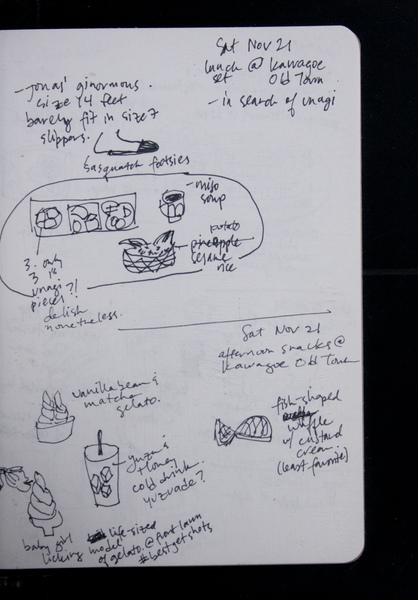 Sat Nov 21
lunch @ Kawagoe
set Old Town
- in search of unagi
- Jonas' ginormous
size 14 feet
barely fit in size 7
slippers.
Sasquatch footsies
- miso
soup
potato
sesame
rice
3. only
3
unagi
pieces?!
delish
nonetheless.
Sat Nov 21
afternoon snacks @
Kawagoe Old Town
vanilla bean &
matcha
gelato.
yuzu &
honey
cold drink.
yuzuade?
fish-shaped
waffle
w/ custard
cream.
(least favorite)
baby girl
licking life-sized
model
of gelato @ front lawn
#bestgetshots